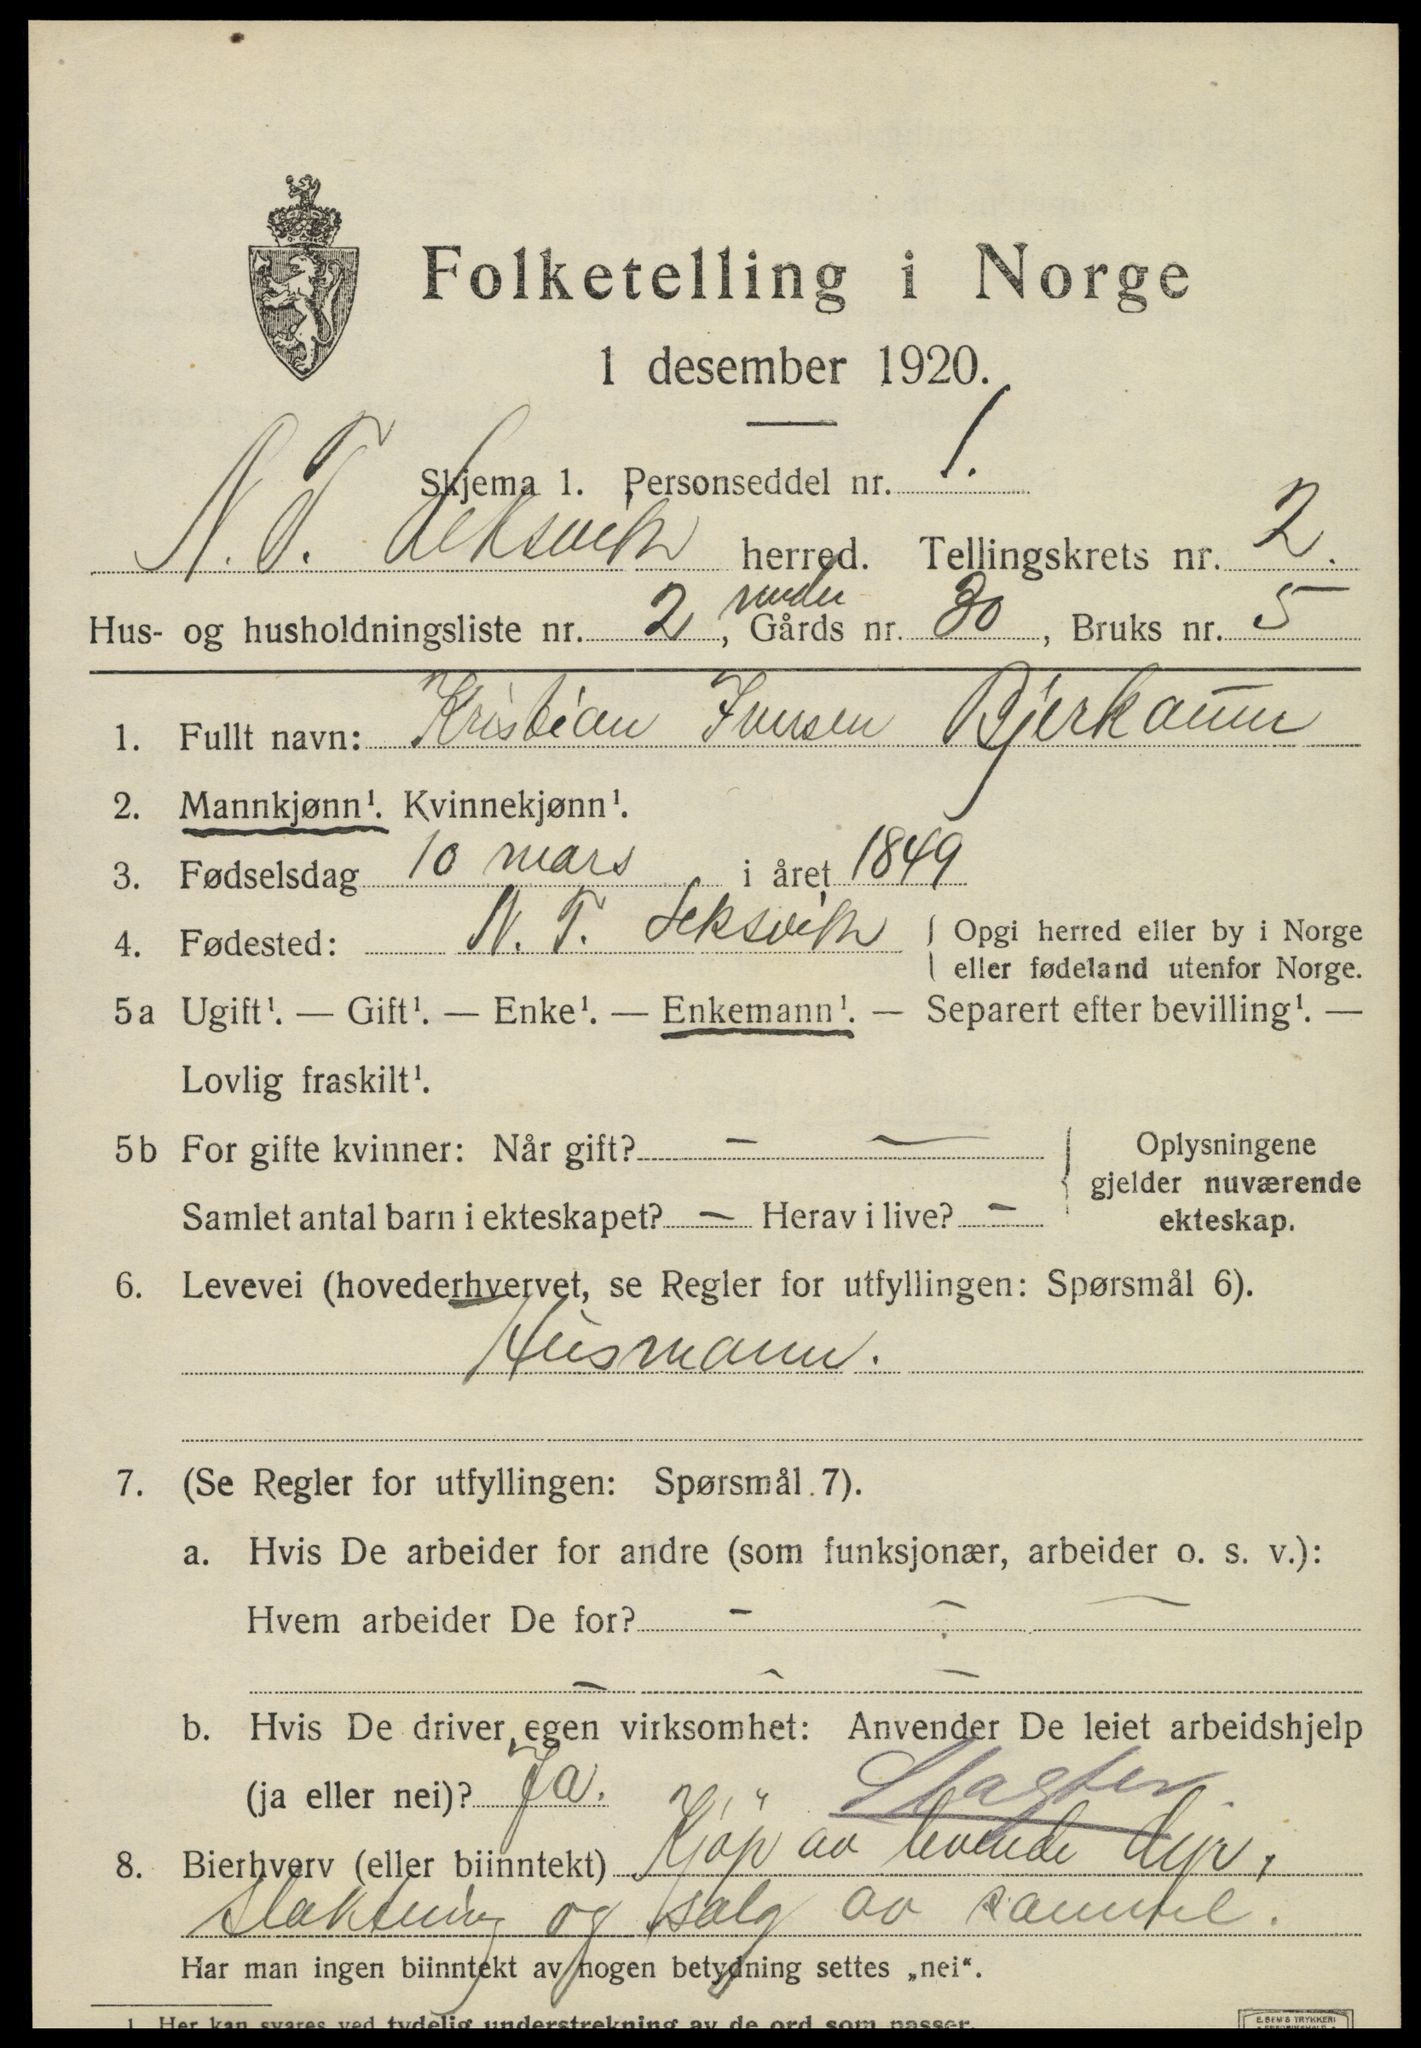 Folketelling i Norge
1 desember 1920.
Skjema 1. Personseddel nr. 1.
N. T. Leksvik herred. Tellingskrets nr. 2.
Hus- og husholdningsliste nr. 2, under Gårds nr. 30, Bruks nr. 5
1. Fullt navn: Kristian Iversen Bjerkaunn
2. Mannkjønn¹. Kvinnekjønn¹.
3. Fødselsdag 10 mars i året 1849
4. Fødested: N. T. Leksvik { Opgi herred eller by i Norge
eller fødeland utenfor Norge.
5a Ugift¹. — Gift¹. — Enke¹. — Enkemann¹. — Separert efter bevilling¹. —
Lovlig fraskilt¹.
5b For gifte kvinner: Når gift? — — { Oplysningene
gjelder nuværende
Samlet antal barn i ekteskapet? — Herav i live? —
ekteskap.
6. Levevei (hovederhvervet, se Regler for utfyllingen: Spørsmål 6).
Husmann.
7. (Se Regler for utfyllingen: Spørsmål 7).
a. Hvis De arbeider for andre (som funksjonær, arbeider o. s. v.):
Hvem arbeider De for? — — —
— — —
b. Hvis De driver egen virksomhet: Anvender De leiet arbeidshjelp
(ja eller nei)? Ja. Slagter
8. Bierhverv (eller biinntekt) Kjöp av levende dyr,
slaktning og salg av samtel.
Har man ingen biinntekt av nogen betydning settes „nei“.
1 Her kan svares ved tydelig understrekning av de ord som passer.
E. SEM'S TRYKKERI
FREDRIKSHALD